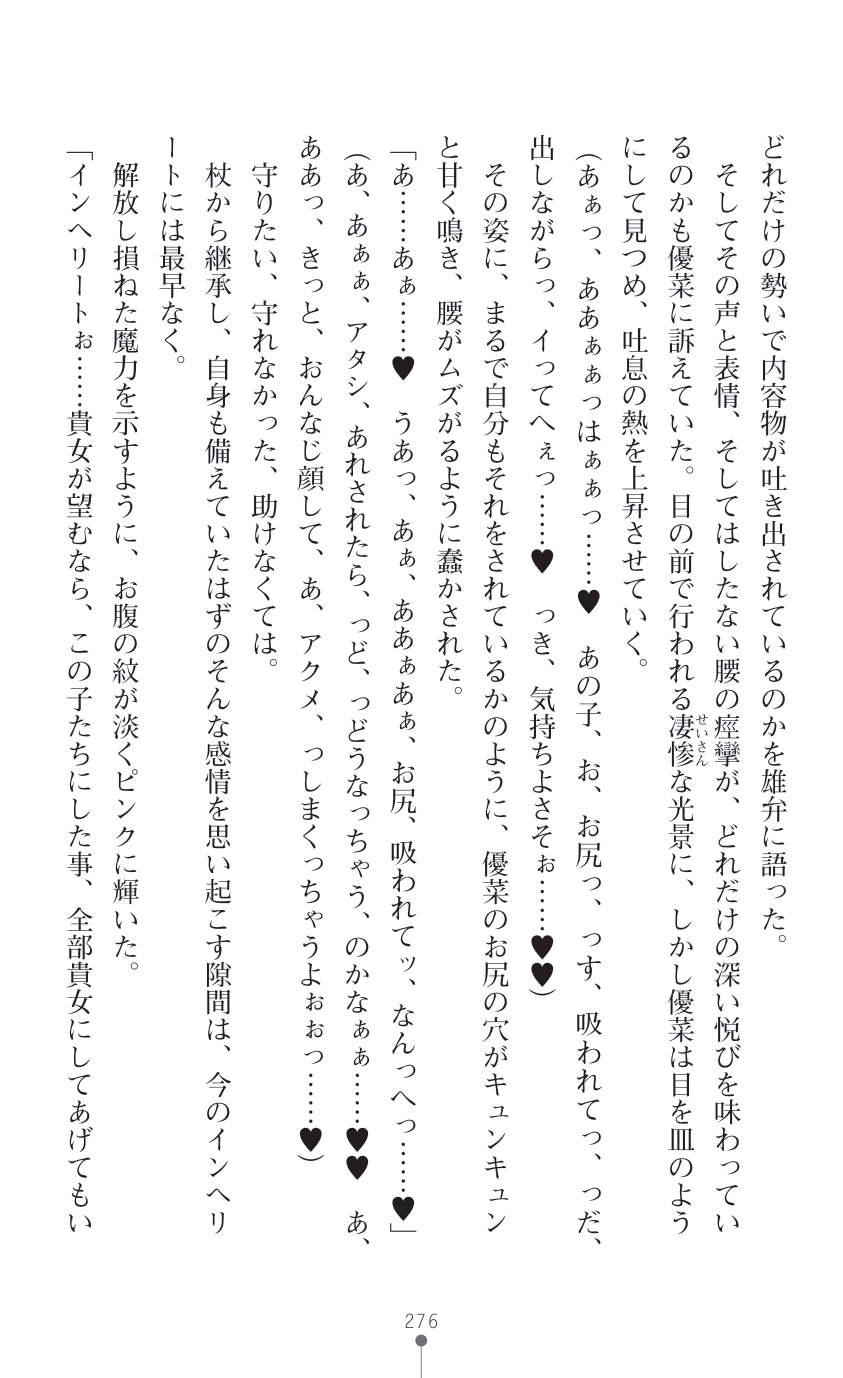 どれだけの勢いで内容物が吐き出されているのかを雄弁に語った。
　そしてその声と表情、そしてはしたない腰の痙攣が、どれだけの深い悦びを味わってい
るのかも優菜に訴えていた。目の前で行われる凄惨な光景に、しかし優菜は目を皿のよう
せいさん
にして見つめ、吐息の熱を上昇させていく。
（あぁっ、ああぁぁっはぁぁっ……♥　あの子、お、お尻っ、っす、吸われてっ、っだ、
出しながらっ、イってへぇっ……♥　っき、気持ちよさそぉ……♥♥）
　その姿に、まるで自分もそれをされているかのように、優菜のお尻の穴がキュンキュン
と甘く鳴き、腰がムズがるように蠢かされた。
「あ……あぁ……♥　うあっ、あぁ、ああぁあぁ、お尻、吸われてッ、なんっへっ……♥」
（あ、あぁぁ、アタシ、あれされたら、っど、っどうなっちゃう、のかなぁぁ……♥♥　あ、
ああっ、きっと、おんなじ顔して、あ、アクメ、っしまくっちゃうよぉぉっ……♥）
　守りたい、守れなかった、助けなくては。
　杖から継承し、自身も備えていたはずのそんな感情を思い起こす隙間は、今のインヘリ
ートには最早なく。
　解放し損ねた魔力を示すように、お腹の紋が淡くピンクに輝いた。
「インヘリートぉ……貴女が望むなら、この子たちにした事、全部貴女にしてあげてもい
276